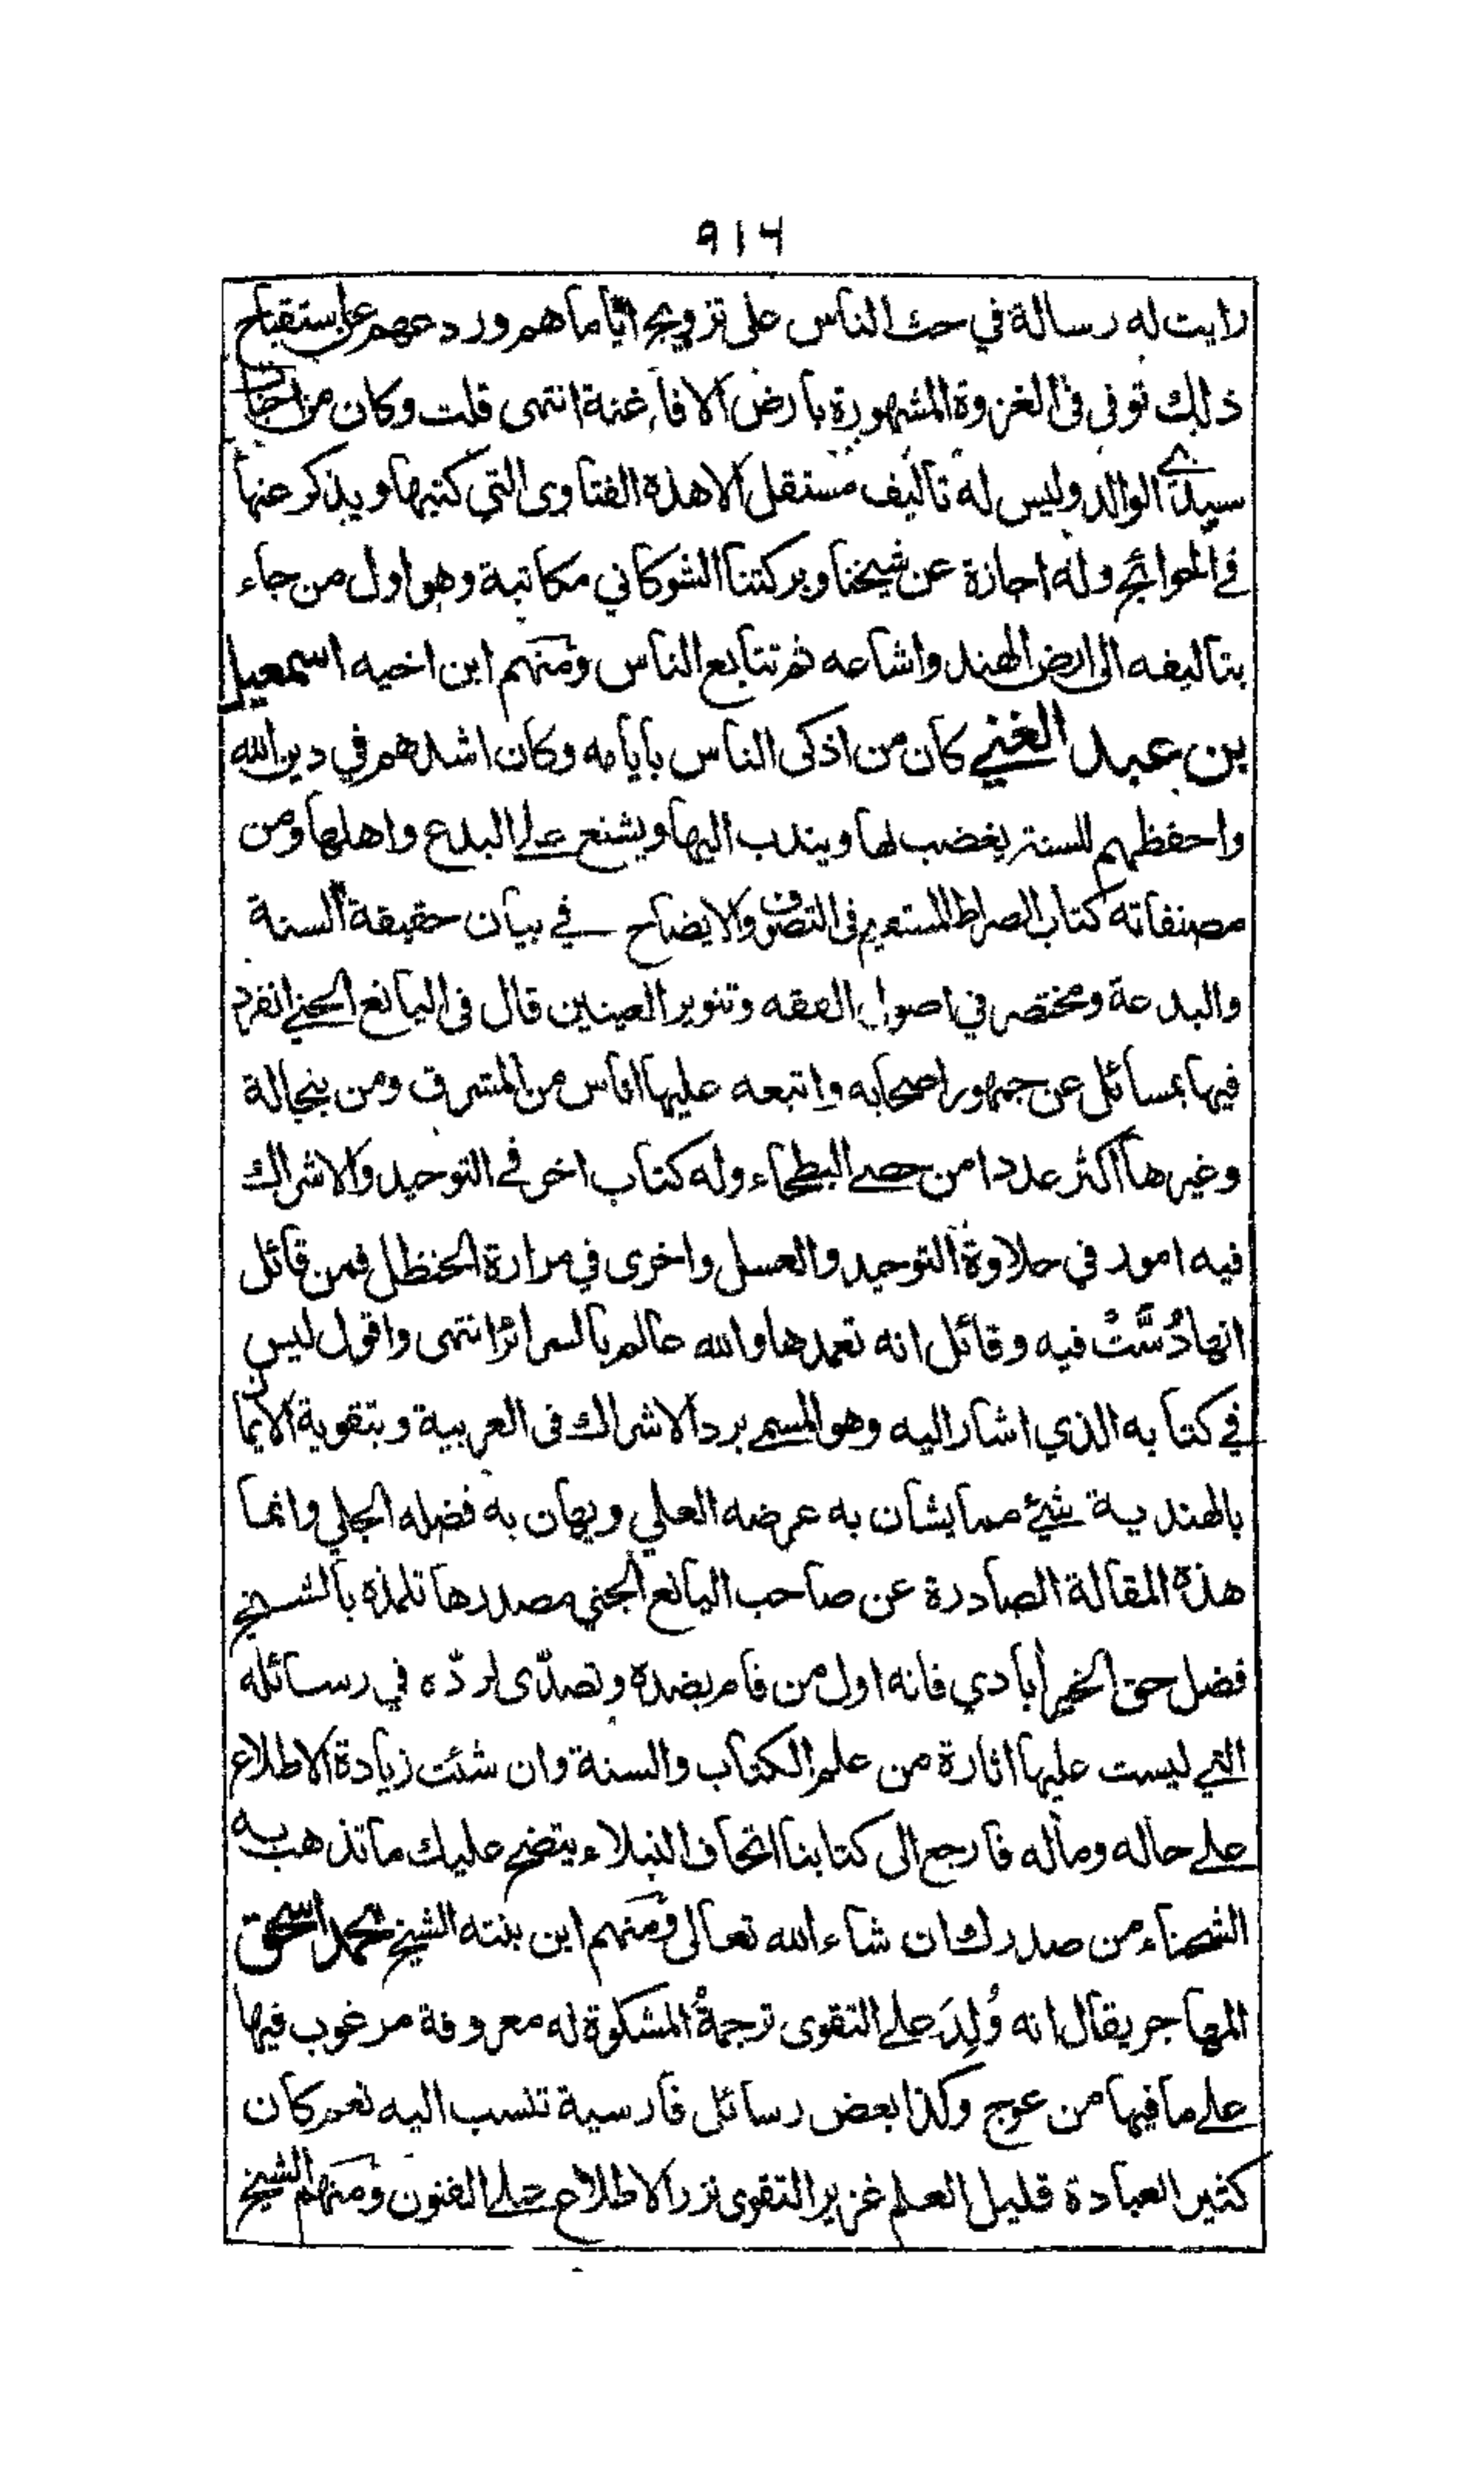 ٩١٦
رايت له رسالة في حث الناس على تزويج اياماهم وردعهم عن استقباح
ذلك توفى فى الغزوة المشهورة بارض الافاغنة انتهى قلت وكان من اخبار
سيدي الوالد وليس له تاليف مستقل الا هذه الفتاوى التي كتبها ويذكر عنها
في الحوائج وله اجازة عن شيخنا وبركتنا الشوكاني مكاتبة وهو اول من جاء
بتاليفه الى ارض الهند واشاعه ثم تتابع الناس ومنهم ابن اخيه اسمعيل
بن عبد الغني كان من اذكى الناس بايامه وكان اشدهم في دين الله
واحفظهم للسنة يغضب لها ويندب اليها ويشنع على البدع واهلها ومن
مصنفاته كتاب الصراط المستقيم فى التصوف والايضاح في بيان حقيقة السنة
والبدعة ومختصر في اصول الفقه وتنوير العينين قال فى اليانع الجني انفرد
فيها بمسائل عن جمهور اصحابه واتبعه عليها اناس من المشرق ومن بنجالة
وغيرها اكثر عددا من حصى البطحاء وله كتاب اخر في التوحيد والاشراك
فيه امور في حلاوة التوحيد والعسل واخرى في مرارة الحنظل فمن قائل
انها دُسَّتْ فيه وقائل انه تعمدها والله عالم بالسرائر انتهى واقول ليس
في كتابه الذي اشار اليه وهو المسمى برد الاشراك فى العربية وبتقوية الايمان
بالهندية شيئ مما يشان به عرضه العلي ويهان به فضله الجلي وانما
هذه المقالة الصادرة عن صاحب اليانع الجني مصدرها تلمذه بالشيخ
فضل حق الخيرابادي فانه اول من قام بضده وتصدّى لردّه في رسائله
التي ليست عليها اثارة من علم الكتاب والسنة وان شئت زيادة الاطلاع
على حاله وماله فارجع الى كتابنا اتحاف النبلاء يتضح عليك ما تذهب به
الشحناء من صدرك ان شاء الله تعالى ومنهم ابن بنته الشيخ محمد اسحق
المهاجر يقال انه وُلِدَ على التقوى ترجمةُ المشكوة له معروفة مرغوب فيها
على ما فيها من عوج وكذا بعض رسائل فارسية تنسب اليه نعم كان
كثير العبادة قليل العلم غزير التقوى نزر الاطلاع على الفنون ومنهم الشيخ